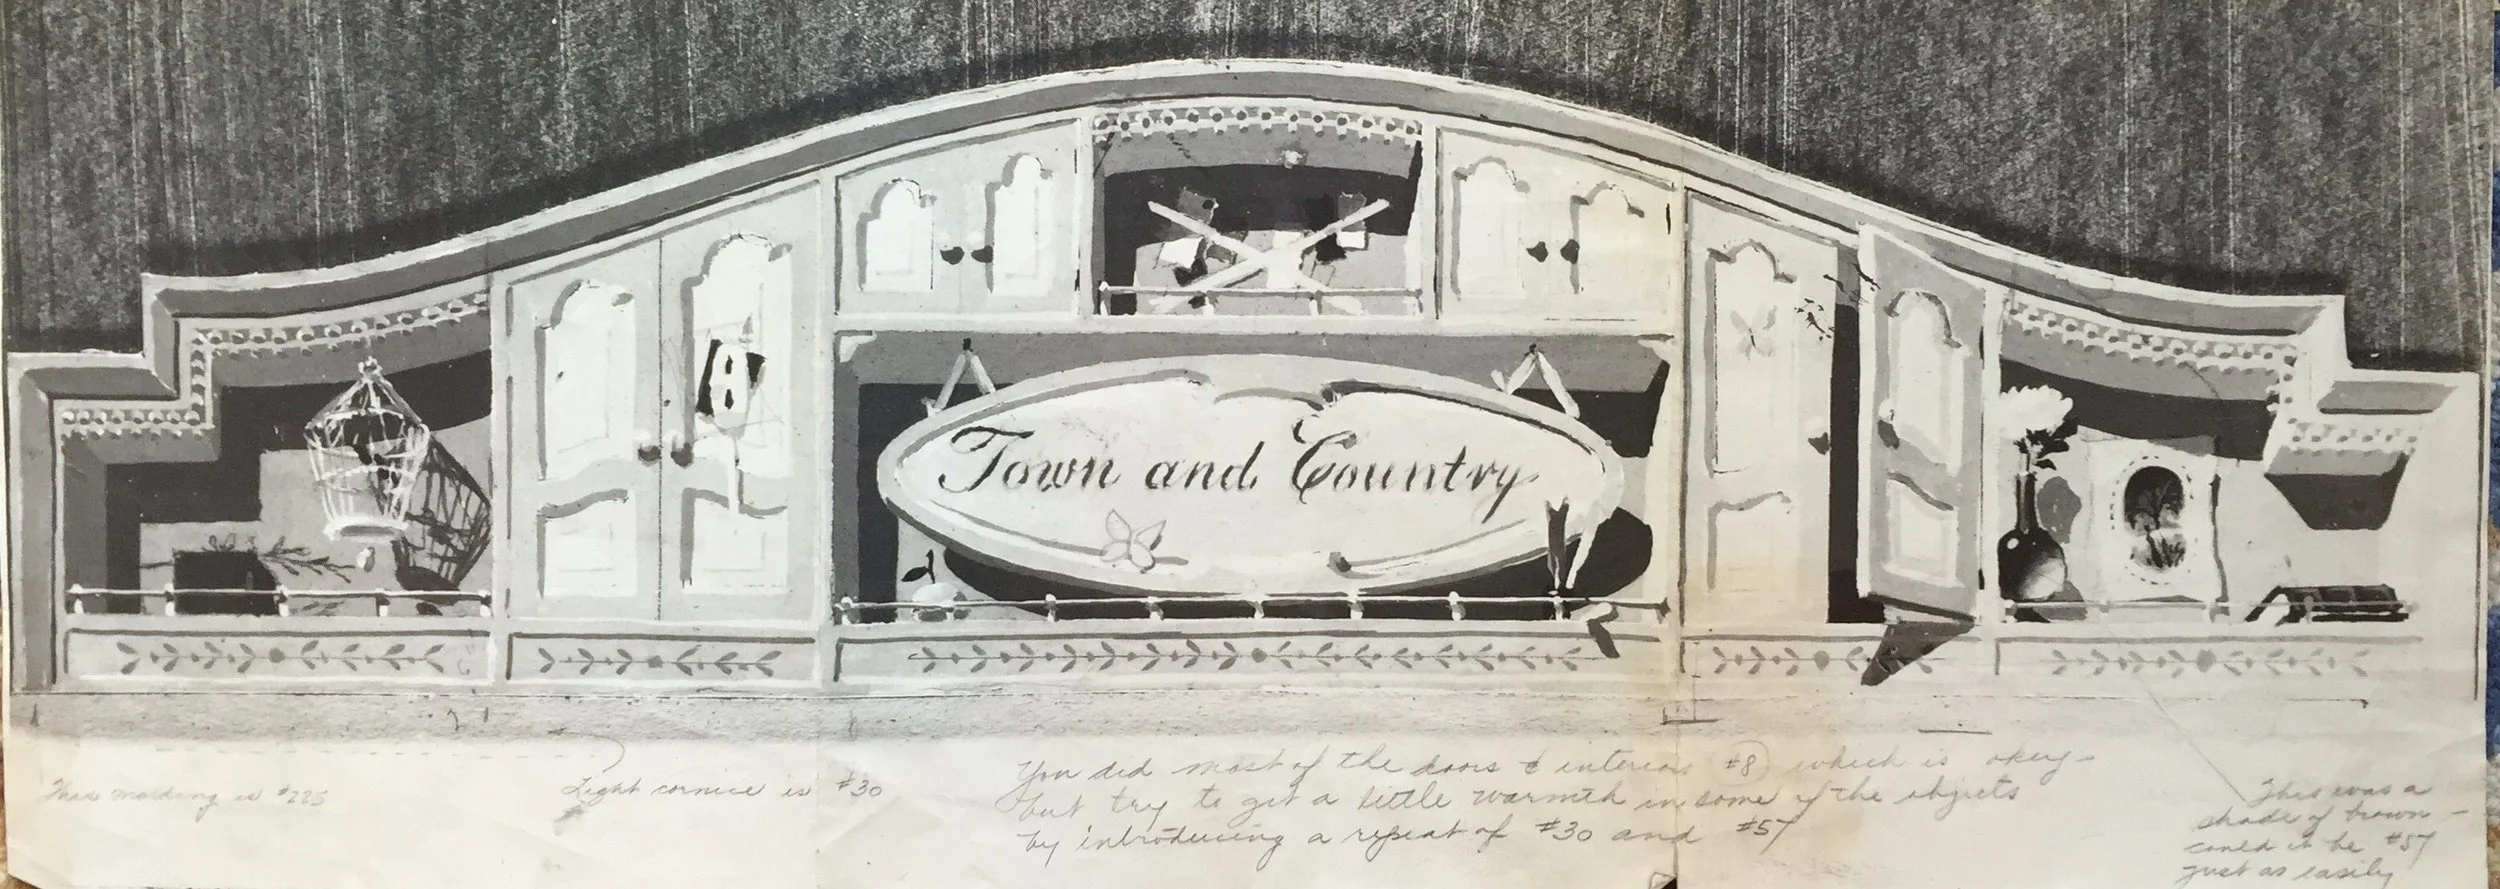 Town and Country
This molding is #225
Light cornice is #30
You did most of the doors & interiors #8 which is okey-
but try to get a little warmth in some of the objects
by introducing a repeat of #30 and #57
This was a
shade of brown-
could it be #57
just as easily